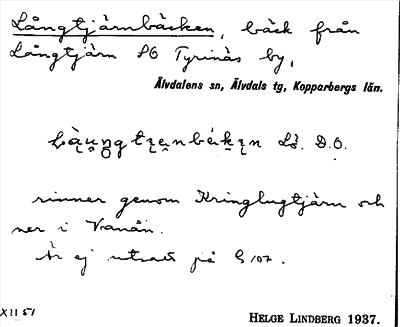 Långtjärnbäcken, bäck från
Långtjärn SO Tyrinäs by,
Älvdalens sn, Älvdals tg, Kopparbergs län.
Ls. D.O.
rinner genom Kringlugtjärn och
ner i Vanån.
Är ej utsatt på G 107.
XII 51
HELGE LINDBERG 1937.